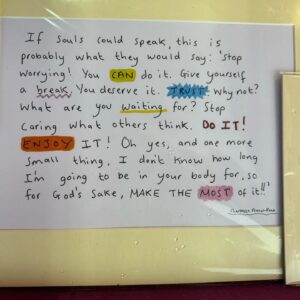 If souls could speak, this is
probably what they would say: 'stop
worrying! You CAN do it. Give yourself
a break. You deserve it. TRUST Why not?
What are you waiting for? Stop
caring what others think. DO IT!
ENJOY IT! Oh yes, and one more
small thing, I don't know how long
I'm going to be in your body for, so
for God's sake, MAKE THE MOST of it!!'